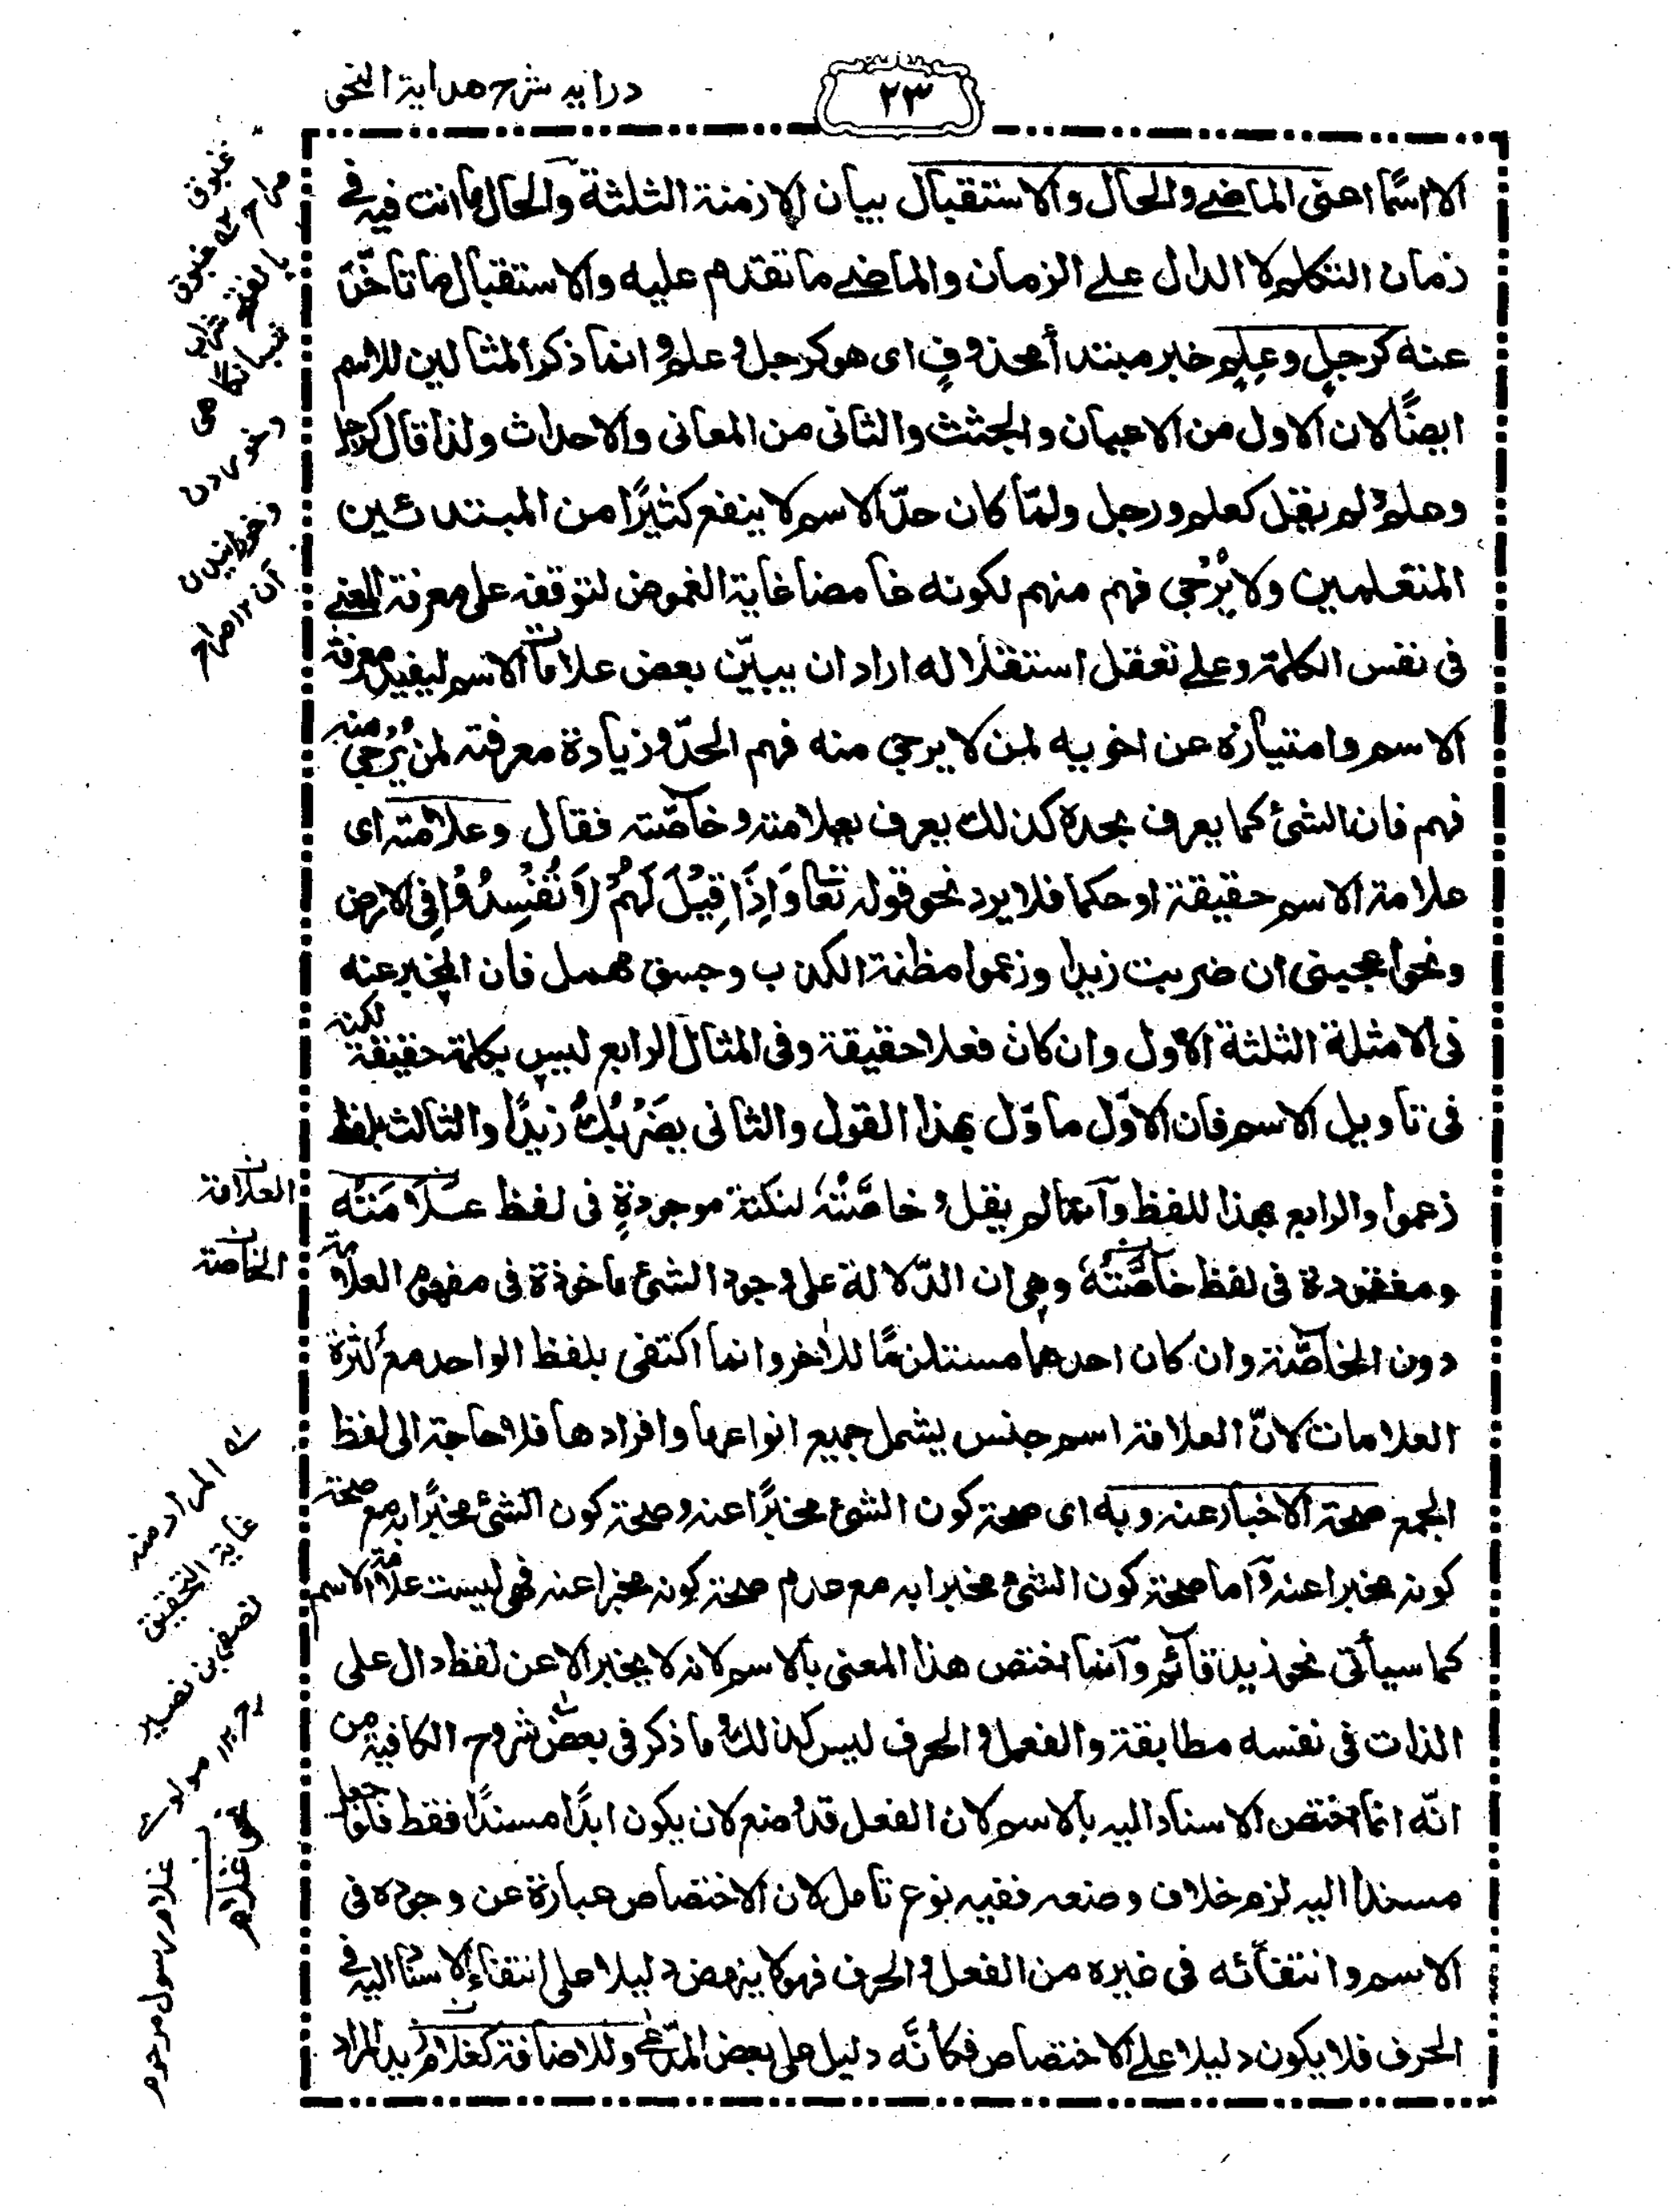 ٢٣
درايہ شرح هداية النحو
الاسماء اعنى الماضے والحال والاستقبال بيان الازمنة الثلثة والحال ما انت فيه فے
زمان التكلم لا الدال علے الزمان والماضے ما تقدم عليه والاستقبال ما تأخّر
عنه كرجلٍ وعلمٍ خبر مبتدأ محذوفٍ اى هو كرجل وعلم وانما ذكر المثالين للاسم
ايضًا لان الاول من الاعيان والجثث والثانى من المعانى والاحداث ولذا قال كرجل
وعلمٍ ولم يقل كعلم ورجل ولمّا كان حدّ الاسم لا ينفع كثيرًا من المبتدئين
المتعلمين ولا يُرْجٰى فهم منهم لكونه غامضا غاية الغموض لتوقفه على معرفة المعنے
فى نفس الكلمة وعلے تعقل استقلاله اراد ان يبيّن بعض علامات الاسم ليفيد معرفة
الاسم وامتيازه عن اخويه لمن لا يرجى منه فهم الحدّ وزيادة معرفته لمن يُرْجٰى منه
فهم فان الشئ كما يعرف بحده كذلك يعرف بعلامته وخاصّته فقال وعلامته اى
علامة الاسم حقيقة او حكما فلا يرد نحو قوله تعا وَاِذَا قِيْلَ لَهُمْ لَا تُفْسِدُوْا فِى الارض
ونحو اعجبنى ان ضربت زيدا وزعموا مظنة الكذب وجسق مهمل فان المخبر عنه
فى الامثلة الثلثة الاول وان كان فعلا حقيقة وفى المثال الرابع ليس بكلمة حقيقة لكنه
فى تاويل الاسم فان الاوّل ماوّل بهذا القول والثانى بضَرْبِكَ زيدًا والثالث بلفظ
زعموا والرابع بهذا اللفظ وانما لم يقل خاصَّتُهٗ لنكتة موجودةٍ فى لفظ عَلَامَتُه
ومفقودة فى لفظ خاصَّتُهٗ وهى ان الدّلالة على وجود الشئ ماخوذة فى مفهوم العلامة
دون الخاصّة وان كان احدهما مستلزمًا للاٰخر وانما اكتفى بلفظ الواحد مع كثرة
العلامات لانّ العلامة اسم جنس يشمل جميع انواعها وافرادها فلا حاجة الى لفظ
الجمع صحة الاخبار عنه وبه اى صحة كون الشئ مخبرًا عنه وصحة كون الشئ مخبرًا به مع صحة
كونه مخبرا عنه واما صحة كون الشئ مخبرا به مع عدم صحة كونه مخبرا عنه فهى ليست علامة الاسم
كما سيأتى نحو زيد قائم وانما اختص هذا المعنى بالاسم لانه لا يخبر الا عن لفظ دال على
الذات فى نفسه مطابقة والفعل والحرف ليس كذلك وما ذكر فى بعض شروح الكافية من
انّه انما اختص الاسناد اليه بالاسم لان الفعل قد وضع لان يكون ابدًا مسندًا فقط فلو جعل
مسندا اليه لزم خلاف وضعه ففيه نوع تامل لان الاختصاص عبارة عن وجوده فى
الاسم وانتفائه فى غيره من الفعل والحرف فهو لا ينهض دليلا على انتفاء الاسناد اليه فے
الحرف فلا يكون دليلا علے الاختصاص فكأنّه دليل على بعض المدّعٰى وللاضافة كغلام زيد المراد
غبوق
بالفتح شراب
شبانگاهى
وخوردن
وخورانيدن
آن ١٢ صراح
العلامة
الخاصة
المراد منه
غاية التحقيق
لصفى بن نصير
١٢ مولوے
غلام رسول مرحوم